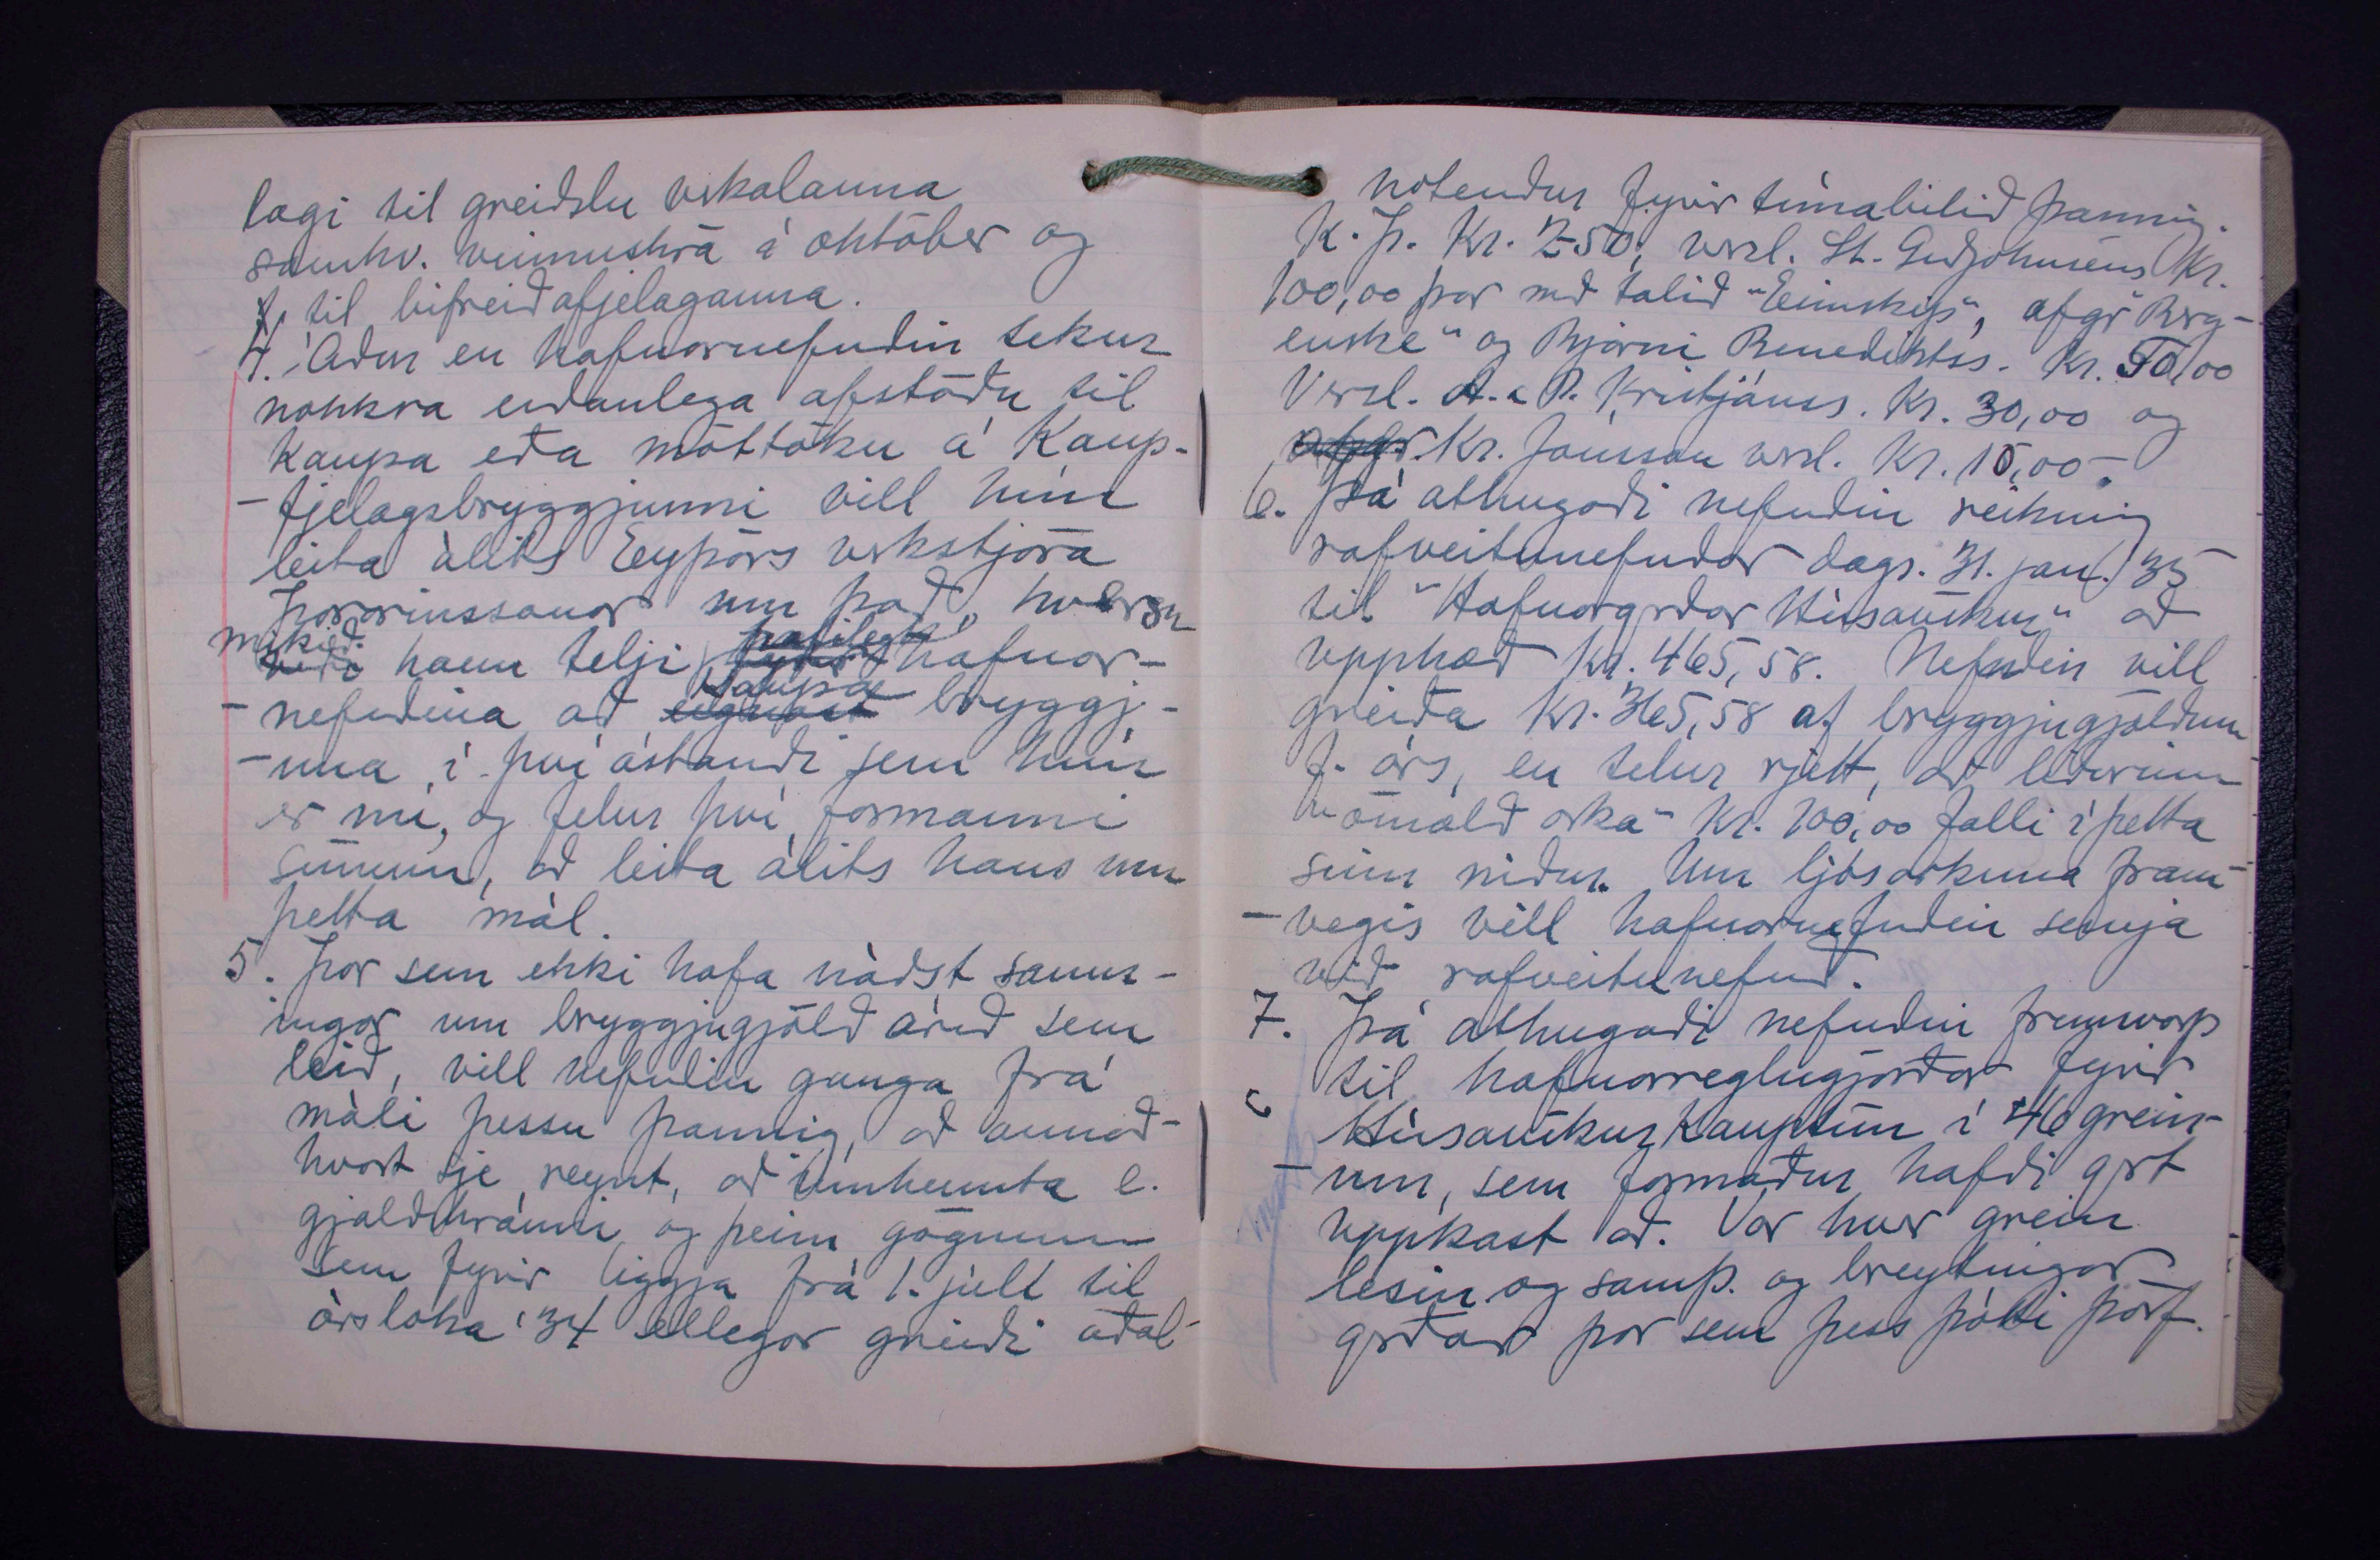 lagi til greiðslu vrkalauna
samkv. vinnuskrá í október og
til bifreiðafjelaganna.
4. Aður en hafnarnefndin tekur
nokkra endanlega afstöðu til
kaupa eða móttöku á Kaup-
-fjelagsbryggjunni vill hún
leita álits Eyþórs vrkstjóra
Þórarinssonar um það, hversu
mikið hann telji hæfilegt hafnar-
-nefndina að kaupa bryggj-
-una í því ástandi sem hún
er nú, og felur því formanni
sínum, að leita álits hans um
þetta mál.
5. Þar sem ekki hafa náðst samn-
ingar um bryggjugjöld árið sem
leið, vill nefndin ganga frá
máli þessu þannig, að annað-
hvort sje reynt, að innheimta e.
gjaldskránni og þeim gögnum
sem fyrir liggja frá 1. júlí til
ársloka '34 ellegar greiði aðal-
notendur fyrir tímabilið þannig.
K. Þ. Kr. 250, vrzl. St. Guðjohnsens Kr.
100,00 þar með talið "Eimskip", afgr. "Berg-
enske" og Bjarni Benediktss. Kr. 50,00
Verzl. A. & P. Kristjánss. Kr. 30,00 og
Kr. Jónsson vrzl. Kr. 15,00.-
6. Þá athugaði nefndin reikning
rafveitunefndar dags. 31. jan. 35
til "Hafnargrðar Húsavíkur" að
upphæð Kr. 465,58. Nefndin vill
greiða Kr. 365,58 af bryggjugjöldum
f. árs, en telur rjett, að liðurinn
"ómæld orka" Kr. 100,00 falli í þetta
sinn niður. Um ljósorkuna fram-
-vegis vill hafnarnefndin semja
við rafveitunefnd.
7. Þá athugaði nefndin frumvarp
til hafnarreglugjörðar fyrir
Húsavíkurkauptún í 46 grein-
-um, sem formaður hafði grt
uppkast að. Var hver grein
lesin og samþ. og breytingar
grðar þar sem þess þótti þörf.